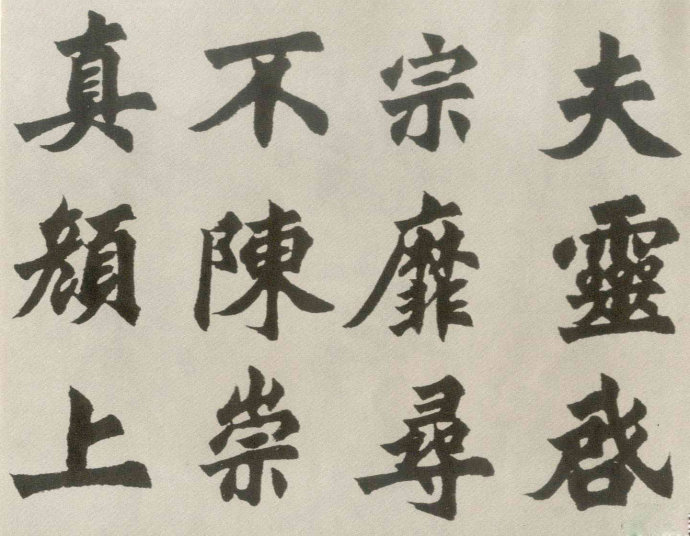 夫靈啓
宗靡尋
不陳崇
真顏上